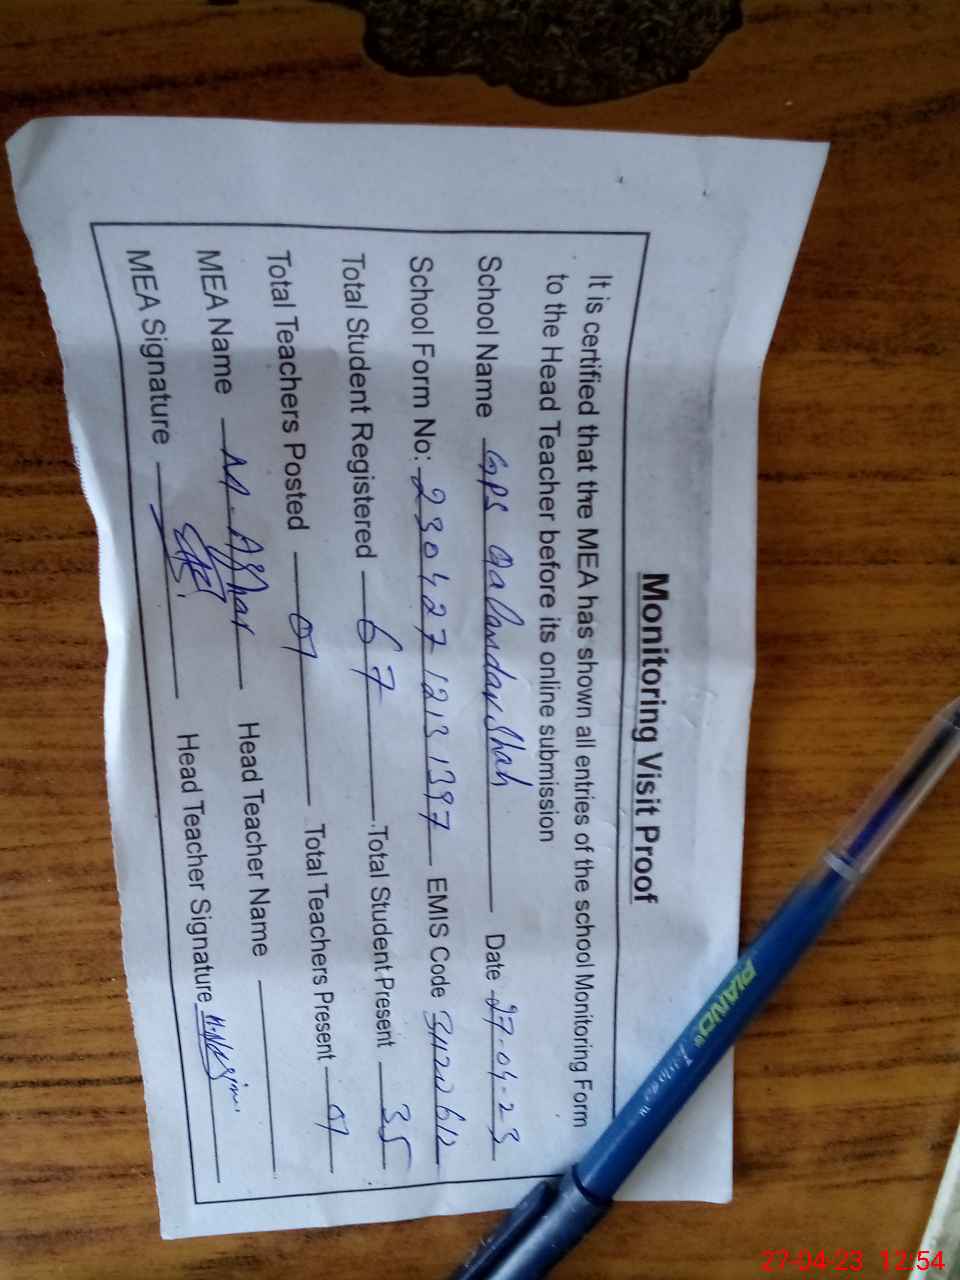 Monitoring Visit Proof
It is certified that the MEA has shown all entries of the school Monitoring Form
to the Head Teacher before its online submission
School Name GPS Qalandar Shah Date 27-04-23
School Form No: 230427 1213 1397 EMIS Code
Total Student Registered 67 Total Student Present 35
Total Teachers Posted 01 Total Teachers Present 01
MEA Name Head Teacher Name
MEA Signature Head Teacher Signature
PIANO
27-04-23 12:54